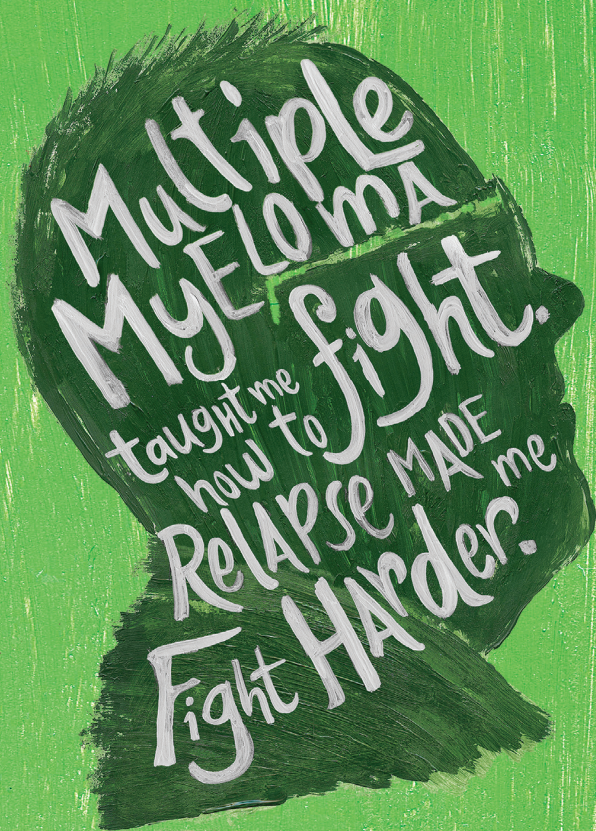 Multiple
MyELOmA
taught me
how to fight.
RelAPse MADE me
Fight HArder.